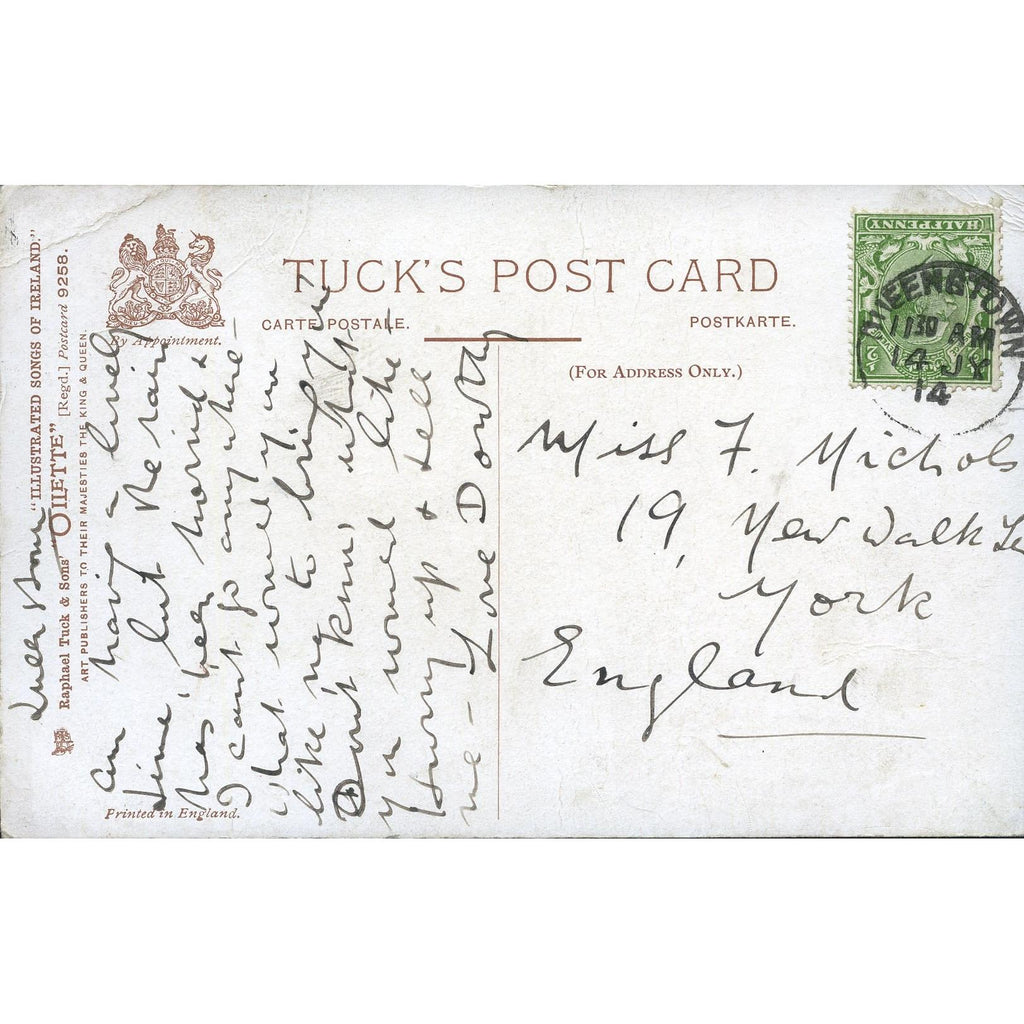 "ILLUSTRATED SONGS OF IRELAND."
Raphael Tuck & Sons' "OILETTE" [Regd.] Postcard 9258.
ART PUBLISHERS TO THEIR MAJESTIES THE KING & QUEEN.
By Appointment.
TUCK'S POST CARD
CARTE POSTALE.
POSTKARTE.
(FOR ADDRESS ONLY.)
HALFPENNY
QUEENSTOWN
11 30 AM
14 JY
14
am having a lovely
time, but the rain
has been horrid &
I cant go anywhere —
What would you
like me to bring you
Don't know what
you would like —
Hurry up & tell
me — Love Dorothy
Miss F. Nichols
19, New Walk
York
England
Printed in England.